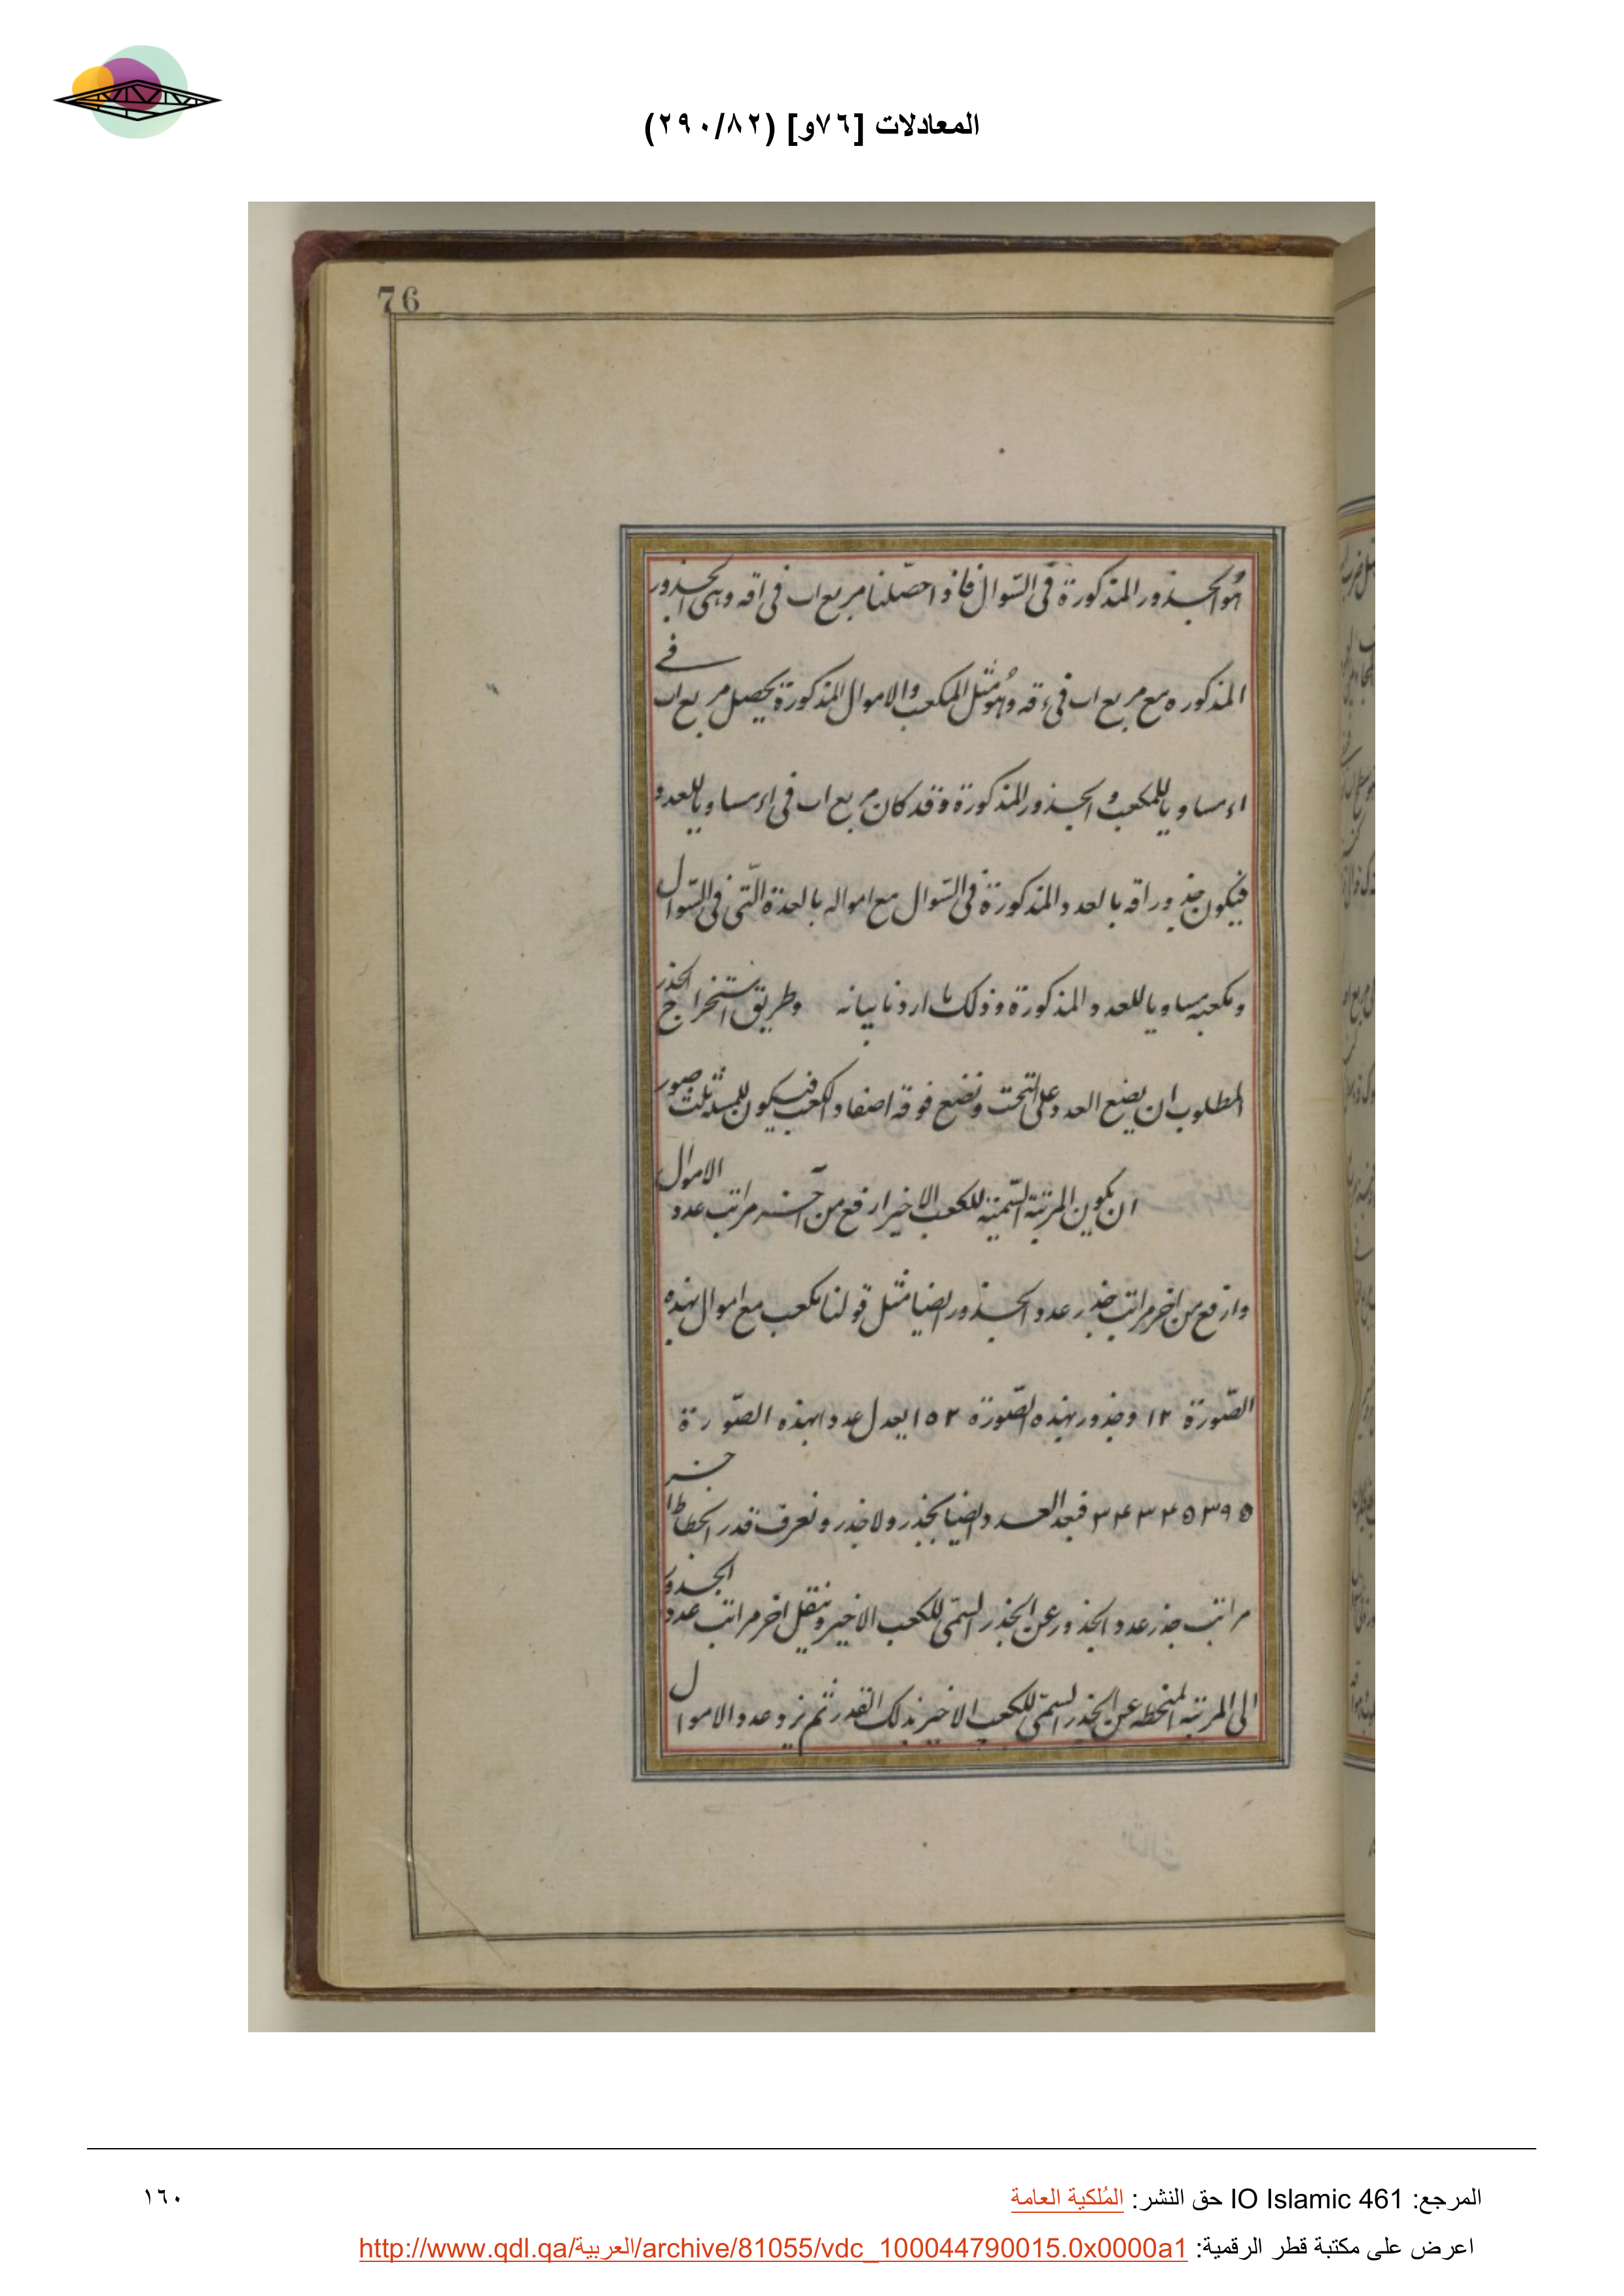 المعادلات [٧٦و] (٢٩٠/٨٢)
76
هو الجذور المذكورة فى السّوال فاذا حصّلنا مربع اب فى اقه وهى الجذور
المذكوره مع مربع اب فى ءقه وهو مثل المكعب والاموال المذكورة يحصل مربع اب فے
اء مساويا للمكعب و الجذور المذكورة وقد كان مربع اب فى اء مساويا للعدد
فيكون جذور اقه بالعدد المذكورة فى السّوال مع امواله بالعدة الّتى فى السّوال
ومكعبه مساويا للعدد المذكورة وذلك ما اردنا بيانه وطريق استخراج الجذر
المطلوب ان يضع العدد على التخت ونضع فوقه اصفار الكعب فيكون للمسئلة ثلث صور
ان يكون المرتبة السّمية للكعب الاخير ارفع من آخر مراتب عدد الاموال
وارفع من اخر مراتب جذر عدد الجذور ايضا مثل قولنا مكعب مع اموال بهذه
الصّورة ١٢ وجذور بهذه الصّورة ١٥٢ يعدل عددا بهذه الصّورة
٣٤٣٤٥٣٩٥ فبعد العدد ايضا بجذر ولا جذر ونعرف قدر انحطاط اخر
مراتب جذر عدد الجذور عن الجذر السمىّ للكعب الاخير وننقل اخر مراتب عدد الجذور
الى المرتبه المنحطه عن الجذر السمىّ للكعب الاخير بذلك القدر ثم نزد عدد الاموال
المرجع: IO Islamic 461 حق النشر: المُلكية العامة
١٦٠
اعرض على مكتبة قطر الرقمية: http://www.qdl.qa/العربية/archive/81055/vdc_100044790015.0x0000a1